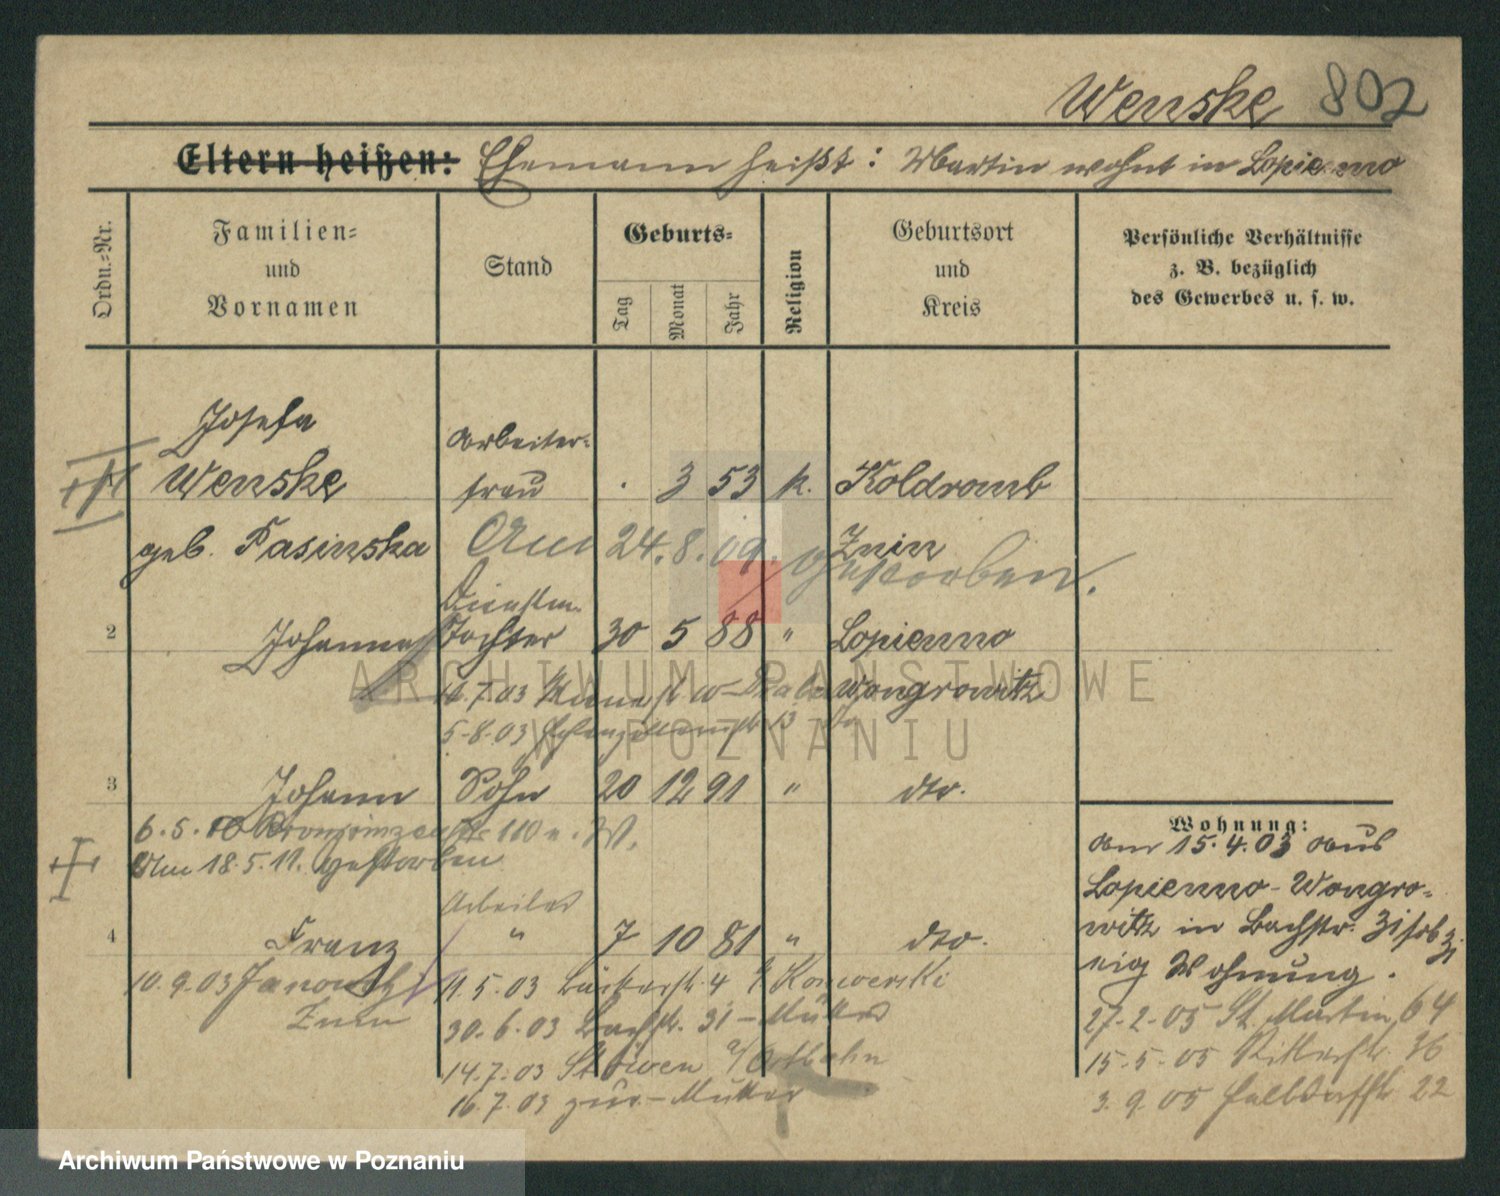 Wenske 802
Eltern heißen: Ehemann heißt: Martin wohnt in Lopienno
Ordn.-Nr.
Familien-
und
Vornamen
Stand
Geburts-
Tag
Monat
Jahr
Religion
Geburtsort
und
Kreis
Persönliche Verhältnisse
z. B. bezüglich
des Gewerbes u. s. w.
Josefa
Arbeiter-
1 Wenske frau . 3 53 k. Koldromb
geb. Jasinska Am 24.8.09. gestorben. Znin
Dienstm.
2 Johanna Tochter 30 5 88 " Lopienno
Wongrowitz
7.03
5.8.03 13
3 Johann Sohn 20 12 91 " dto.
6.5.10 Kronprinzenstr. 110
Am 18.5.11. gestorben
Arbeiter
4 Franz " 7 10 81 " dto.
10.9.03 Janowitz
Znin
11.5.03 Bäckerstr. 4
30.6.03 Bachstr. 31 - Mutter
14.7.03 Stöwen a/Ostbahn
16.7.03 zur - Mutter
Wohnung:
Am 15.4.03 aus
Lopienno-Wongro-
witz in Bachstr. 31
Wohnung.
27.2.05 St. Martin 64
15.5.05 Ritterstr. 36
3.9.05 22
ARCHIWUM PAŃSTWOWE
W POZNANIU
Archiwum Państwowe w Poznaniu